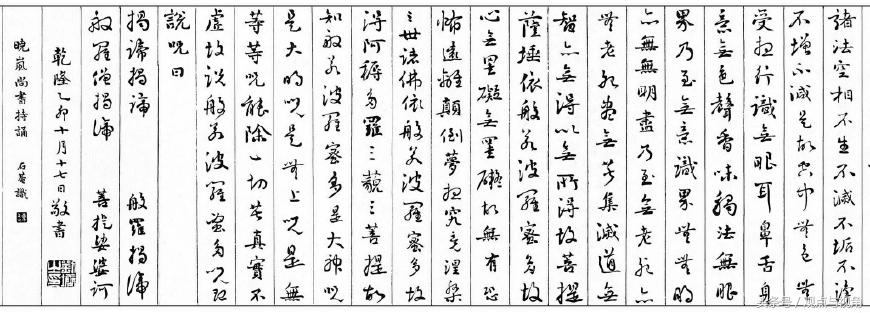 諸法空相不生不滅不垢不淨
不增不減是故空中無色無
受想行識無眼耳鼻舌身
意無色聲香味觸法無眼
界乃至無意識界無無明
亦無無明盡乃至無老死亦
無老死盡無苦集滅道無
智亦無得以無所得故菩提
薩埵依般若波羅蜜多故
心無罣礙無罣礙故無有恐
怖遠離顛倒夢想究竟涅槃
三世諸佛依般若波羅蜜多故
得阿耨多羅三藐三菩提故
知般若波羅蜜多是大神咒
是大明咒是無上咒是無
等等咒能除一切苦真實不
虛故說般若波羅蜜多咒即
說咒曰
揭諦揭諦 般羅揭諦
般羅僧揭諦 菩提娑婆訶
乾隆乙卯十月十七日敬書
曉嵐尚書持誦 石菴識
头条号／观点与视角